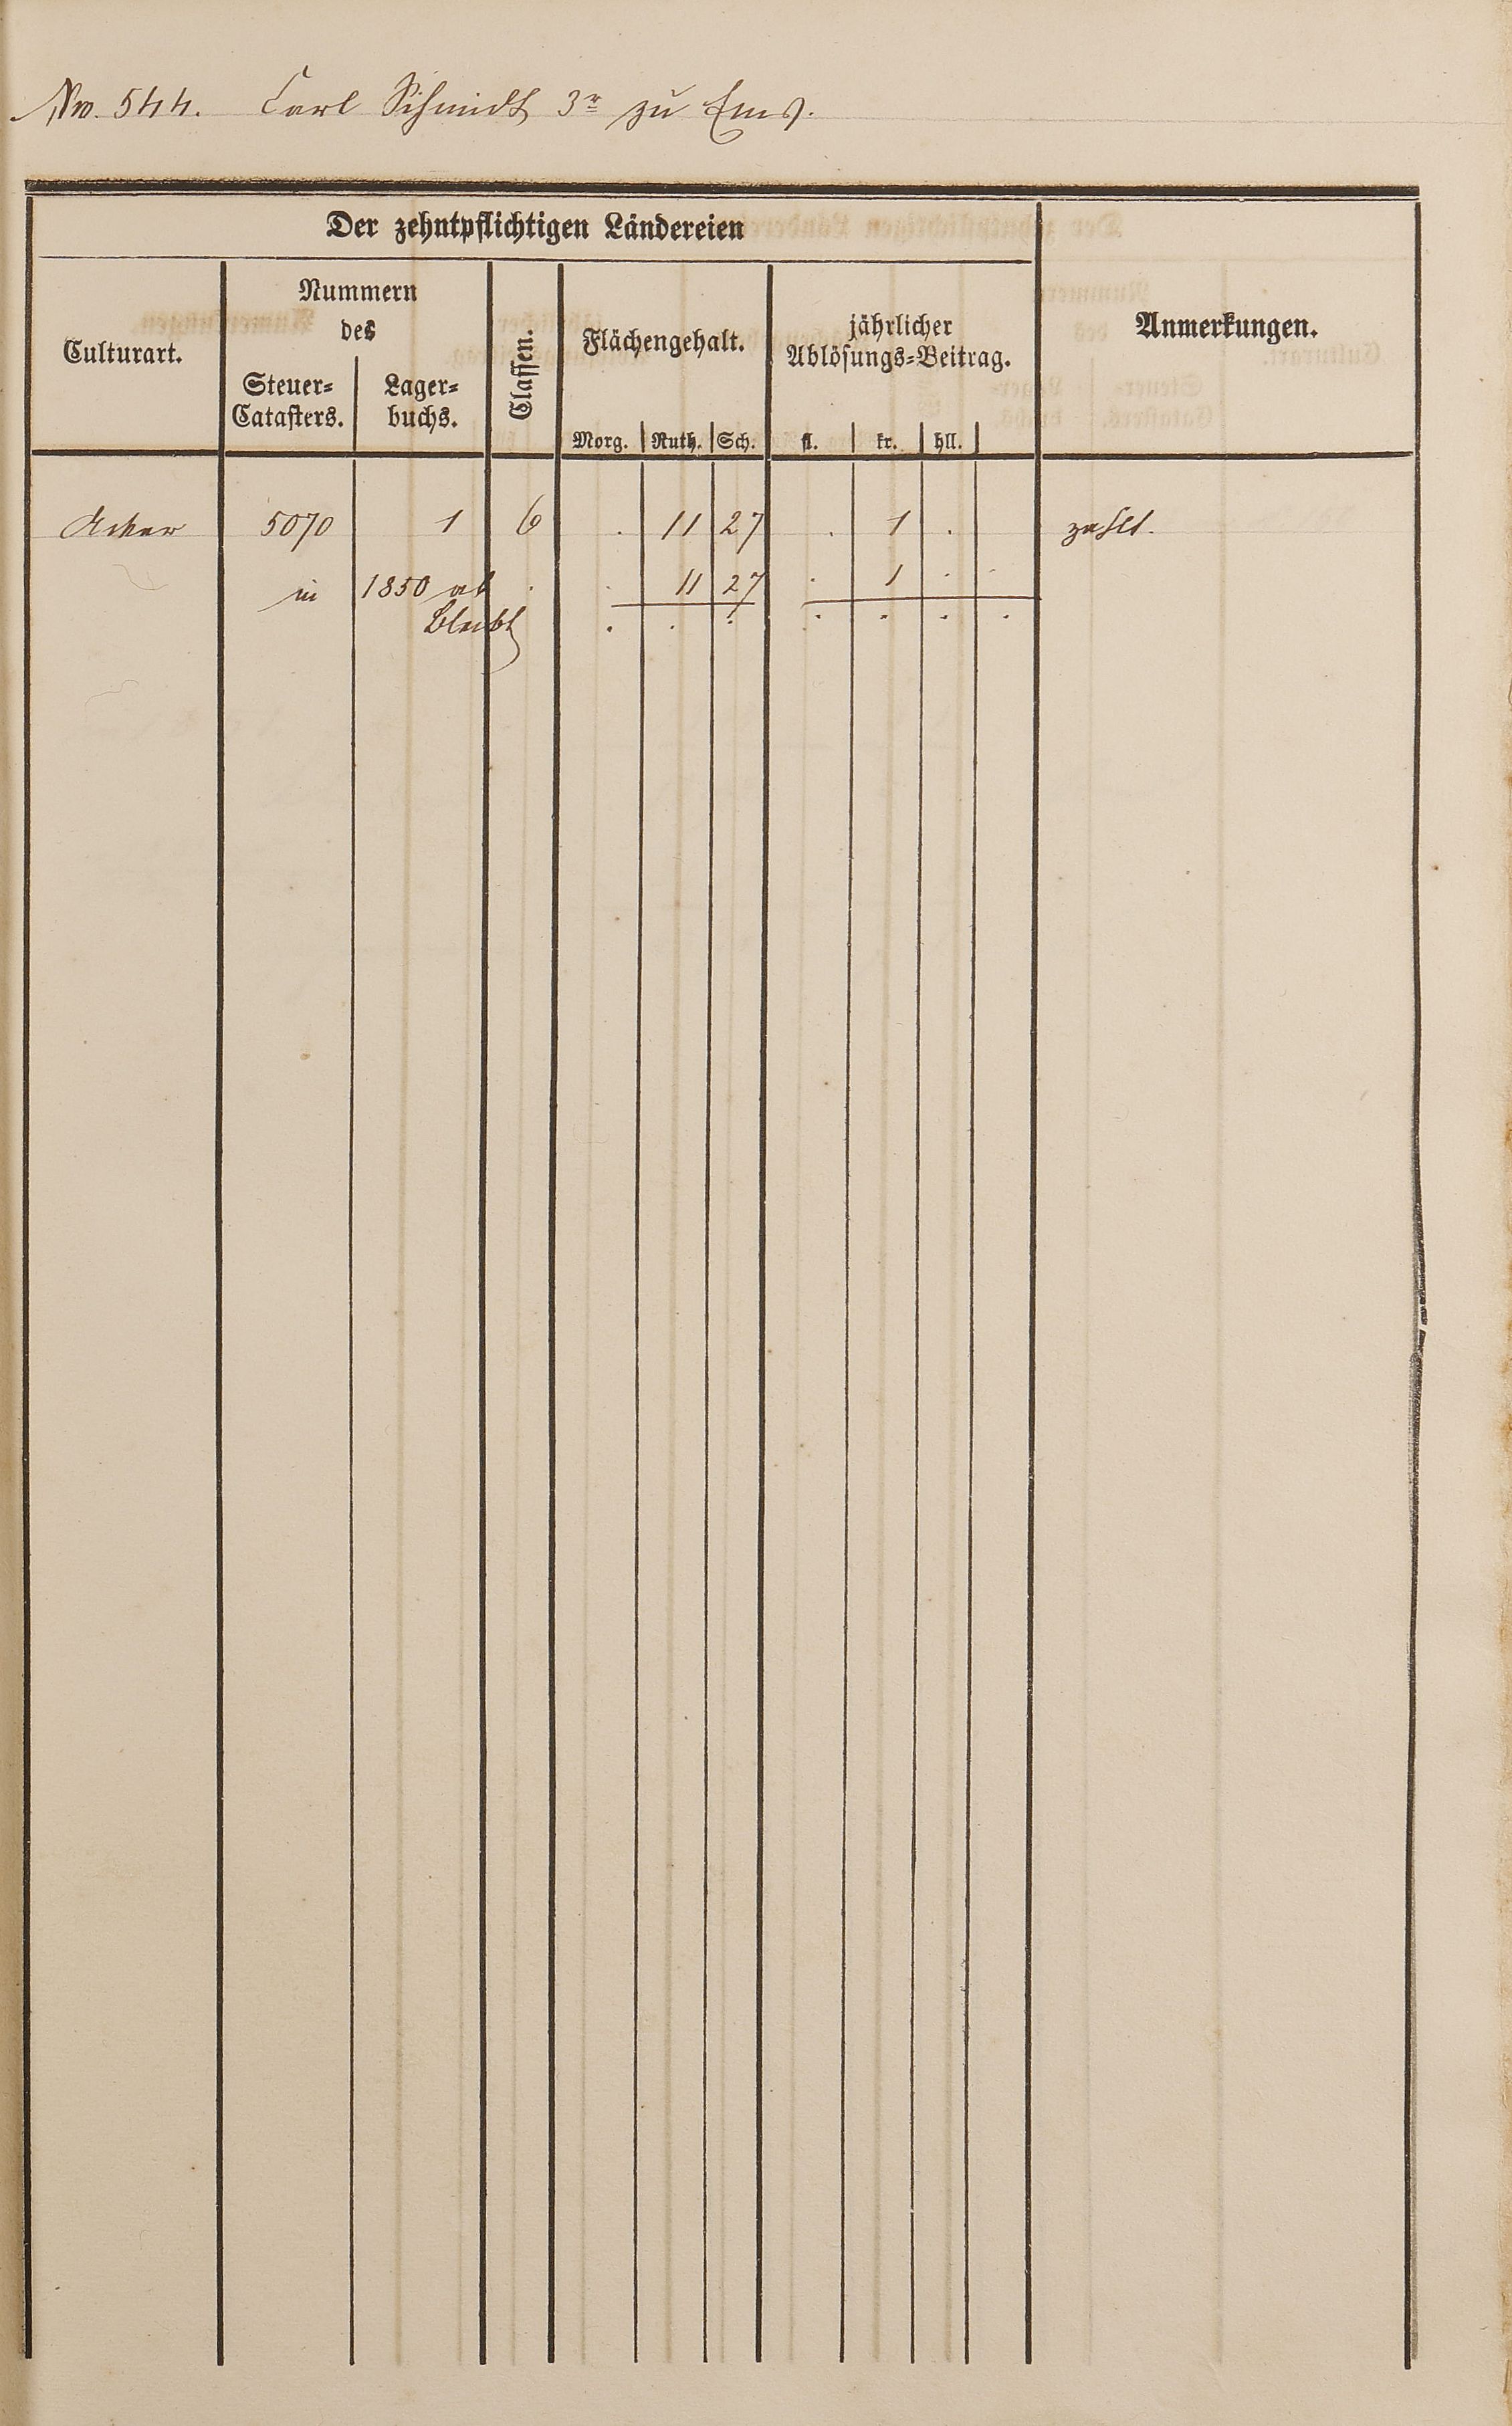 No. 544. Carl Schmidt 3r zu Ems.
Der zehntpflichtigen Ländereien
Culturart.
Nummern
des
Steuer-
Catasters.
Lager-
buchs.
Classen.
Flächengehalt.
Morg. Ruth. Sch.
jährlicher
Ablösungs-Beitrag.
fl. kr. hll.
Anmerkungen.
Acker 5070 1 6 . 11 27 . 1 . zahlt.
in 1850 ab . . 11 27 . 1 . .
bleibt . . . . . . .